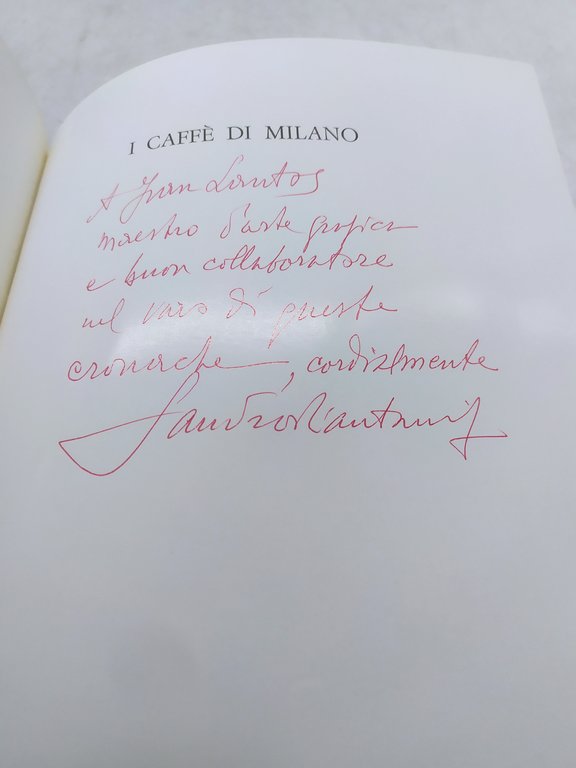 I CAFFÈ DI MILANO
A Juan Santos
maestro d'arte grafica
e buon collaboratore
nel varo di queste
cronache, cordialmente
Sandro Piantanida